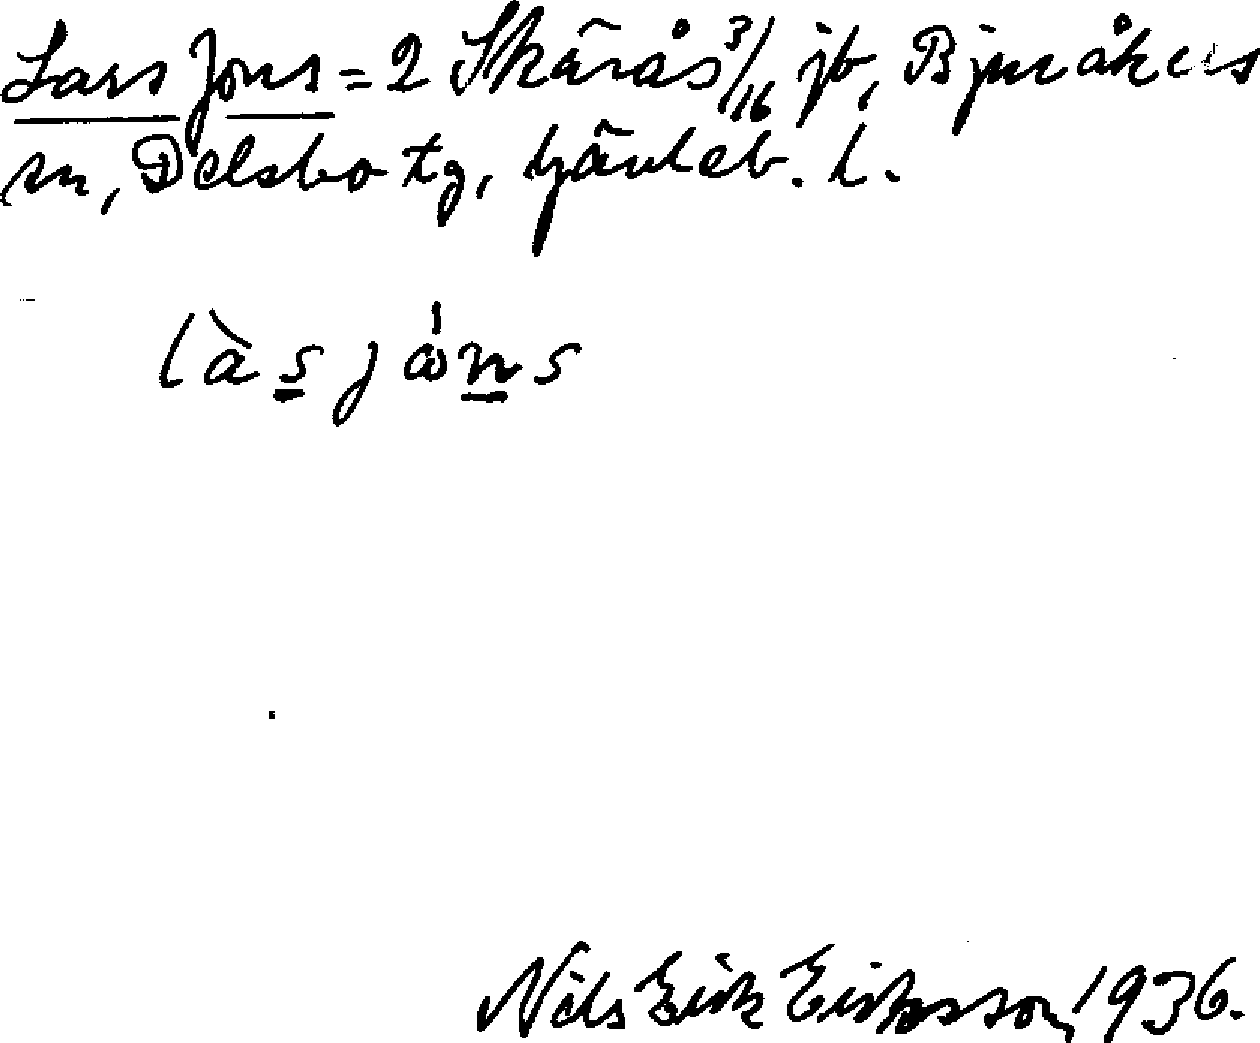 Lars Jons = 2 Skärås 3/16 jb, Bjuråkers
sn, Delsbo tg, Gävleb. l.
làs jòns
Nils Erik Eriksson, 1936.